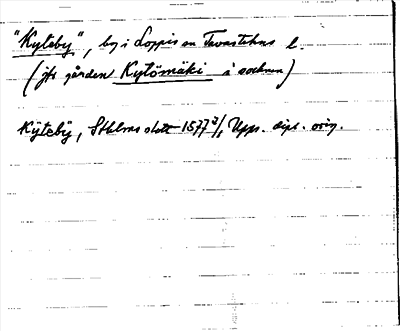 "Kyteby", by i Loppis sn Tavastehus l.
(jfr gården Kytömäki i socknen)
Kÿtebÿ, Sthlms slott 1577 2/1, Upps. dipl. orig.